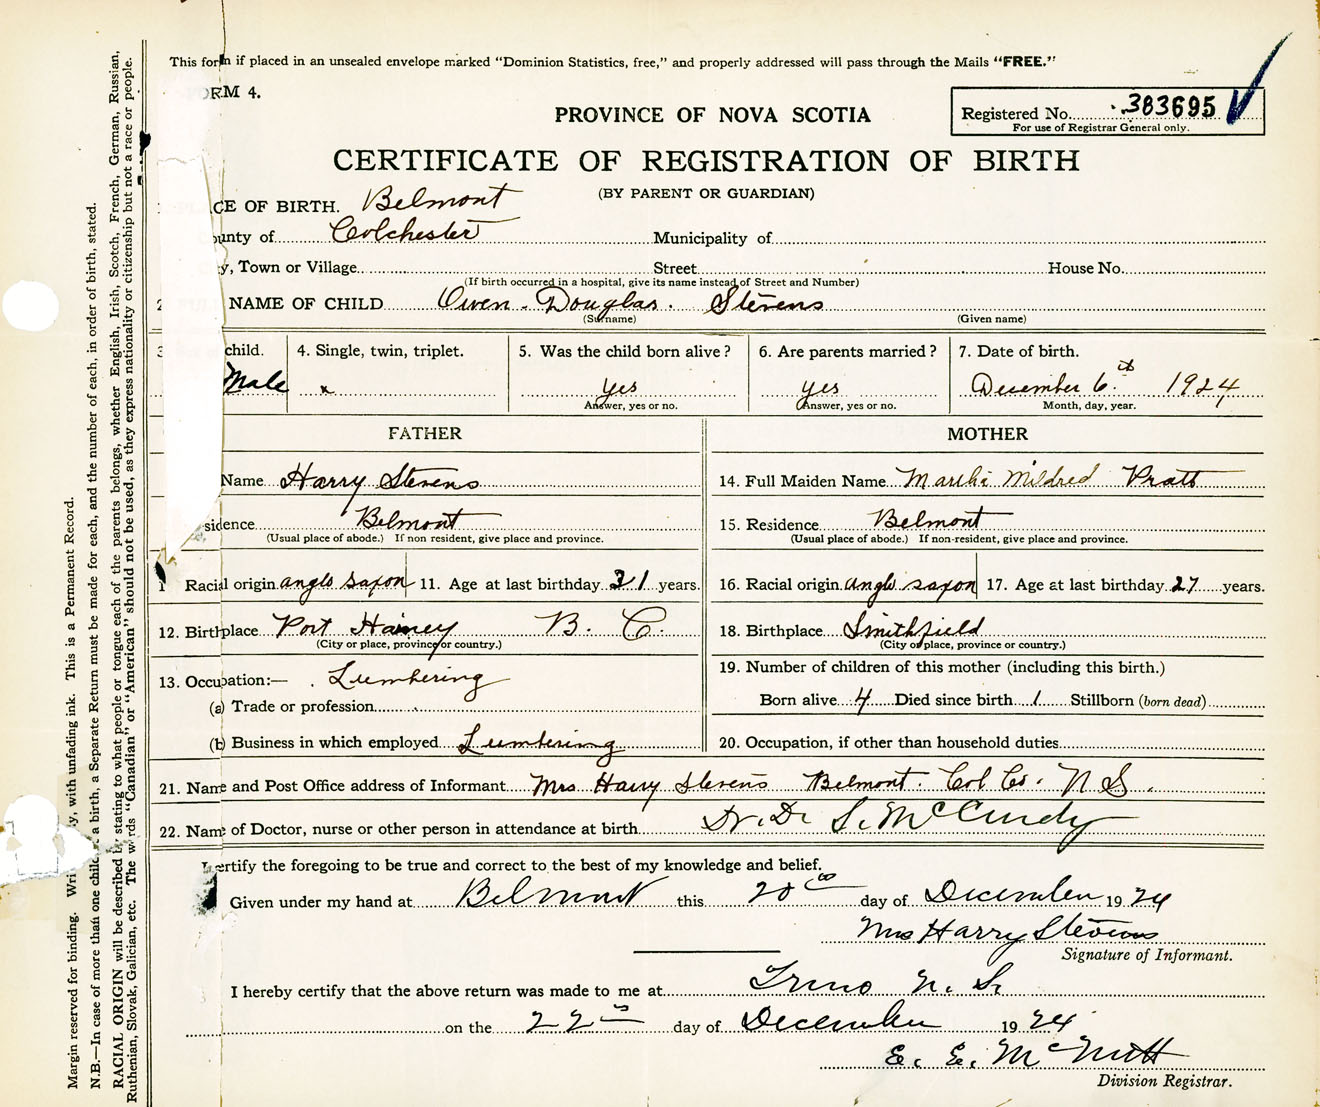 This form if placed in an unsealed envelope marked "Dominion Statistics, free," and properly addressed will pass through the Mails "FREE."
FORM 4.
PROVINCE OF NOVA SCOTIA
Registered No. 383695
For use of Registrar General only.
CERTIFICATE OF REGISTRATION OF BIRTH
(BY PARENT OR GUARDIAN)
PLACE OF BIRTH. Belmont
County of Colchester Municipality of
City, Town or Village Street House No.
(If birth occurred in a hospital, give its name instead of Street and Number)
2. FULL NAME OF CHILD Owen Douglas Stevens
(Surname) (Given name)
3. child. 4. Single, twin, triplet. 5. Was the child born alive? 6. Are parents married? 7. Date of birth.
Male x yes yes December 6th 1924
Answer, yes or no. Answer, yes or no. Month, day, year.
FATHER MOTHER
Name Harry Stevens 14. Full Maiden Name Martha Mildred Pratt
sidence Belmont 15. Residence Belmont
(Usual place of abode.) If non resident, give place and province. (Usual place of abode.) If non-resident, give place and province.
1 Racial origin anglo saxon 11. Age at last birthday 31 years. 16. Racial origin anglo saxon 17. Age at last birthday 27 years.
12. Birthplace Port Haney B. C. 18. Birthplace Smithfield
(City or place, province or country.) (City or place, province or country.)
13. Occupation:— Lumbering 19. Number of children of this mother (including this birth.)
(a) Trade or profession Born alive 4 Died since birth 1 Stillborn (born dead)
(b) Business in which employed Lumbering 20. Occupation, if other than household duties
21. Name and Post Office address of Informant Mrs Harry Stevens Belmont. Col Co. N S.
22. Name of Doctor, nurse or other person in attendance at birth Dr. D. S. McCurdy
I certify the foregoing to be true and correct to the best of my knowledge and belief.
Given under my hand at Belmont this 20th day of December 1924
Mrs Harry Stevens
Signature of Informant.
I hereby certify that the above return was made to me at Truro N. S.
on the 22nd day of December 1924
E. E. McNutt
Division Registrar.
Margin reserved for binding. Wri ly, with unfading ink. This is a Permanent Record.
N.B.—In case of more than one child a birth, a Separate Return must be made for each, and the number of each, in order of birth, stated.
RACIAL ORIGIN will be described by stating to what people or tongue each of the parents belongs, whether English, Irish, Scotch, French, German, Russian,
Ruthenian, Slovak, Galician, etc. The words "Canadian" or "American" should not be used, as they express nationality or citizenship but not a race or people.